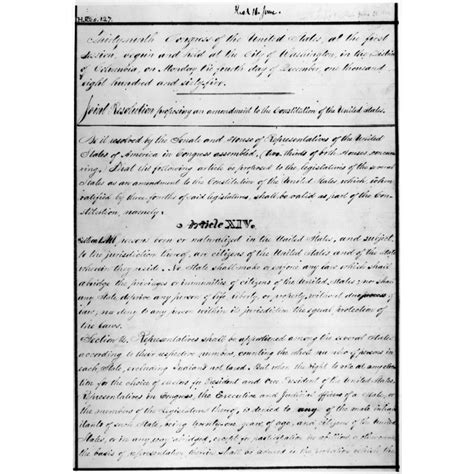 H.Res. 127.
Thirty-ninth Congress of the United States, at the first
Session, begun and held at the City of Washington, in the District
of Columbia, on Monday the fourth day of December, one thousand
eight hundred and sixty-five,
Joint Resolution proposing an amendment to the Constitution of the United States.
Be it resolved by the Senate and House of Representatives of the United
States of America in Congress assembled, (two thirds of both Houses concur-
ring,) That the following article be proposed to the legislatures of the several
States as an amendment to the Constitution of the United States, which, when
ratified by three fourths of said legislatures, shall be valid as part of the Con-
stitution, namely:
Article XIV.
Section 1. All persons born or naturalized in the United States, and subject
to the jurisdiction thereof, are citizens of the United States and of the State
wherein they reside. No State shall make or enforce any law which shall
abridge the privileges or immunities of citizens of the United States; nor shall
any State deprive any person of life, liberty, or property, without due process of
law, nor deny to any person within its jurisdiction the equal protection of
the laws.
Section 2. Representatives shall be apportioned among the several States
according to their respective numbers, counting the whole number of persons in
each State, excluding Indians not taxed. But when the right to vote at any elec-
tion for the choice of electors for President and Vice President of the United States,
Representatives in Congress, the Executive and Judicial officers of a State, or
the members of the Legislature thereof, is denied to any of the male inhab-
itants of such State, being twenty-one years of age, and citizens of the United
States, or in any way abridged, except for participation in rebellion or other crime,
the basis of representation therein shall be reduced in the proportion which the